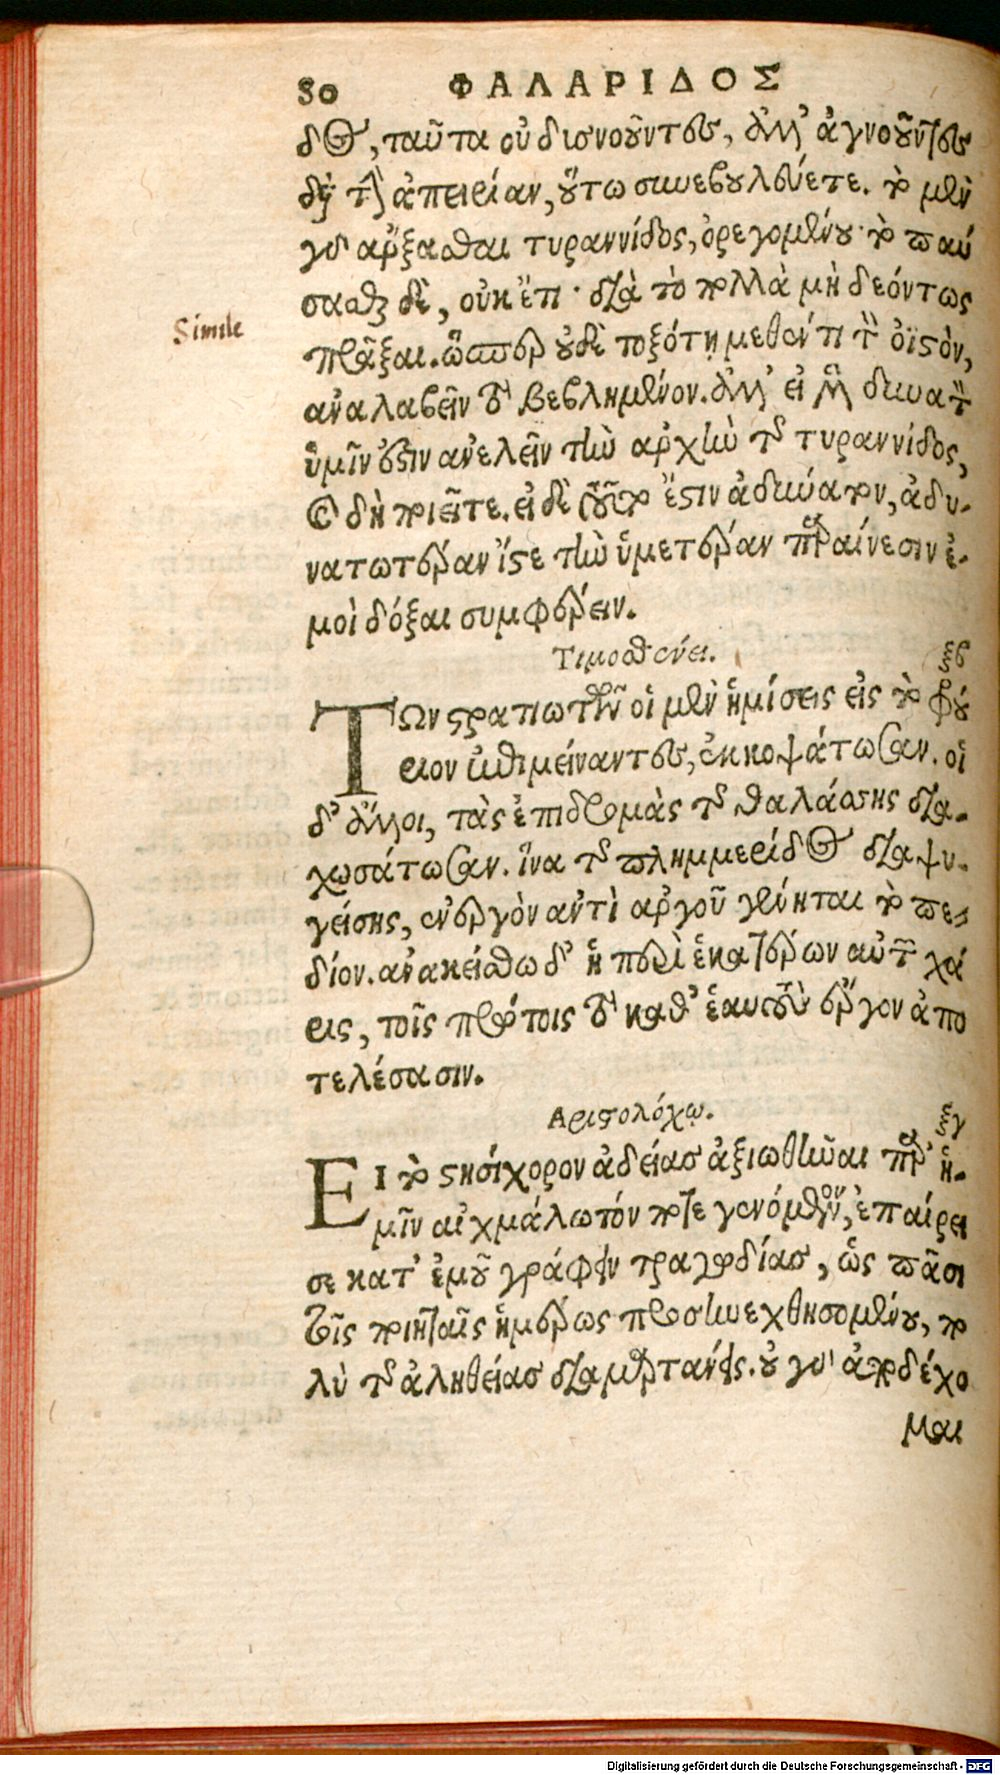 80 ΦΑΛΑΡΙΔΟΣ
δος, ταῦτα οὐ διανοοῦντες, ἀλλ' ἀγνοοῦντες
δὴ τὴν ἀπειρίαν, οὕτω συνεβουλεύετε. τὸ μὲν
γὰρ ἄρξασθαι τυραννίδος, ὀρεγομένου· τὸ παύ
σασθαι δὲ, οὐκ ἔτι· διὰ τὸ πολλὰ μὴ δεόντως
Simile
πρᾶξαι. ὥσπερ οὐδὲ τοξότῃ μεθέντι τὸν ὀϊστὸν,
ἀναλαβεῖν τὸν βεβλημένον. ἀλλ' εἰ μὲν δυνατὸν
ὑμῖν ἐστιν ἀνελεῖν τὴν ἀρχὴν τῆς τυραννίδος,
καὶ δὴ ποιεῖτε. εἰ δὲ τοῦτο ἔστιν ἀδύνατον, ἀδυ-
νατωτέραν ἴστε τὴν ὑμετέραν παραίνεσιν ἐ-
μοὶ δόξαι συμφέρειν.
Τιμοσθένει. ξβ
ΤΩν στρατιωτῶν οἱ μὲν ἡμίσεις εἰς τὸ φρού
ριον ἐπιμείναντες, ἐκκοψάτωσαν. οἱ
δ' ἄλλοι, τὰς ἐπιδρομὰς τῆς θαλάσσης δια-
χωσάτωσαν. ἵνα τῆς πλημμερίδος διαψυ-
γείσης, ἐνεργὸν ἀντὶ ἀργοῦ γένηται τὸ πε-
δίον. ἀνακείσθω δ' ἡ παρὶ ἑκατέρων αὐτῶν χά
ρις, τοῖς πρώτοις τὸ καθ' ἑαυτοὺς ἔργον ἀπο
τελέσασιν.
Αριστολόχῳ. ξγ
ΕΙ τὸ στησίχορον ἀδείας ἀξιωθῆναι παρ' ἡ-
μῖν αἰχμάλωτόν ποτε γενόμενον, ἐπαίρει
σε κατ' ἐμοῦ γράφειν τραγῳδίας, ὡς πᾶσι
τοῖς ποιηταῖς ἡμέρως προσενεχθησομένου, πο
λὺ τῆς ἀληθείας διαμαρτάνεις. οὐ γὰρ ἀποδέχο
μαι
Digitalisierung gefördert durch die Deutsche Forschungsgemeinschaft - DFG